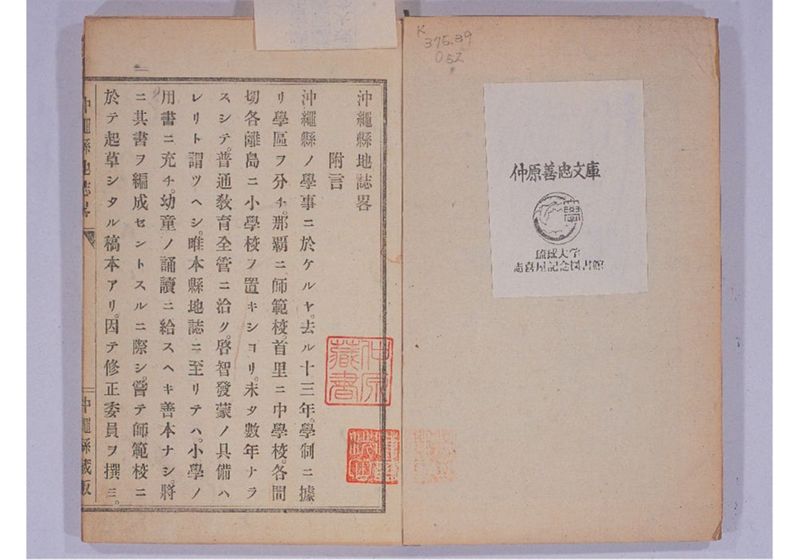 K
375.39
仲原善忠文庫
琉球大学
志喜屋記念図書館
沖繩縣地誌畧
附言
沖繩縣ノ學事ニ於ケルヤ。去ル十三年。學制ニ據
リ學區ヲ分チ。那覇ニ師範校首里ニ中學校。各間
切各離島ニ小學校ヲ置キショリ。未タ數年ナラ
スシテ。普通敎育全管ニ洽ク。啓智發蒙ノ具備ハ
レリト謂ツヘシ。唯本縣地誌ニ至リテハ。小學ノ
用書ニ充チ。幼童ノ誦讀ニ給スヘキ善本ナシ。將
ニ其書ヲ編成セントスルニ際シ。嘗テ師範校ニ
於テ起草シタル稿本アリ。因テ修正委員ヲ撰ミ。
沖繩縣地誌畧
沖繩縣藏版
仲原
藏書